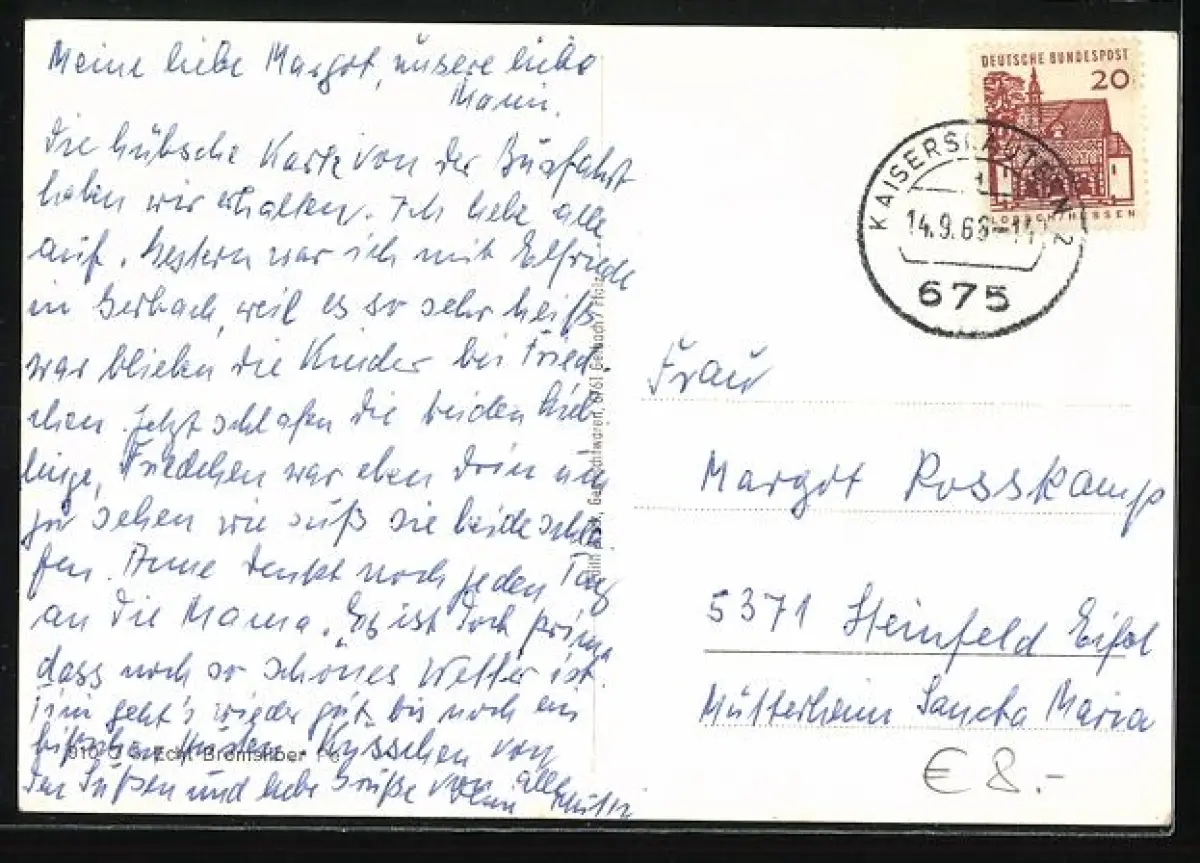 Meine liebe Margot, unsere liebe
Mami.
Die hübsche Karte von der Busfahrt
haben wir erhalten. Ich hebe alle
auf. Gestern war ich mit Elfriede
in Gerbach, weil es so sehr heiß
war blieben die Kinder bei Fried-
chen. Jetzt schlafen die beiden Lieb-
linge, Friedchen war eben drin um
zu sehen wie süß sie beide schla-
fen. Anne denkt noch jeden Tag
an die Mama. Es ist doch prima
dass noch so schönes Wetter ist.
Timi geht's wieder gut bis noch ein
bißchen Husten. Küsschen von
den Süßen und liebe Grüße von alle
Mutti
Echt Bromsilber
Gerbach/Pfalz
DEUTSCHE BUNDESPOST
20
LORSCH/HESSEN
KAISERSLAUTERN 2
14.9.66
675
Frau
Margot Rosskamp
5371 Steinfeld Eifel
Mütterheim Sancta Maria
€ 8.-